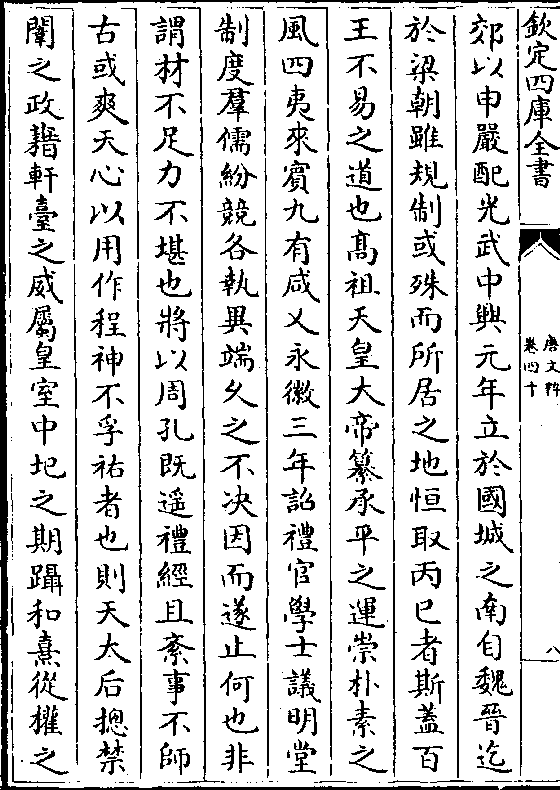 欽定四庫全書
唐文粹
卷四十
八
郊以申嚴配光武中興元年立於國城之南自魏晉迄
於梁朝雖規制或殊而所居之地恒取丙巳者斯蓋百
王不易之道也高祖天皇大帝纂承平之運崇朴素之
風四夷來賓九有咸乂永徽三年詔禮官學士議明堂
制度羣儒紛競各執異端久之不決因而遂止何也非
謂材不足力不堪也將以周孔既遥禮經且紊事不師
古或爽天心以用作程神不孚祐者也則天太后摠禁
闈之政藉軒臺之威屬皇室中圮之期躡和熹從權之